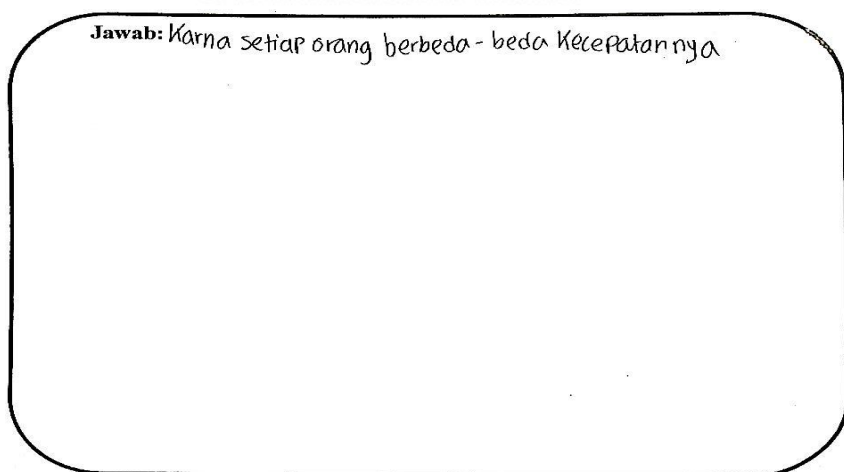 Jawab: Karna setiap orang berbeda-beda Kecepatannya